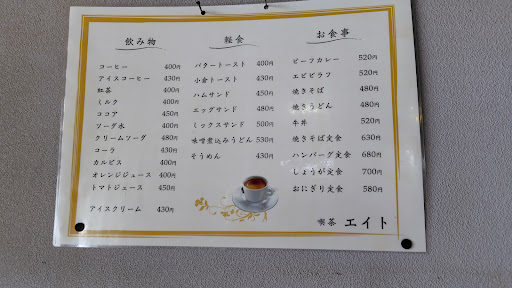 飲み物
コーヒー 400円
アイスコーヒー 430円
紅茶 400円
ミルク 400円
ココア 450円
ソーダ水 400円
クリームソーダ 480円
コーラ 430円
カルピス 400円
オレンジジュース 400円
トマトジュース 450円
アイスクリーム 430円
軽食
バタートースト 400円
小倉トースト 430円
ハムサンド 450円
エッグサンド 480円
ミックスサンド 500円
味噌煮込みうどん 530円
そうめん 430円
お食事
ビーフカレー 520円
エビピラフ 520円
焼きそば 480円
焼きうどん 480円
牛丼 520円
焼きそば定食 630円
ハンバーグ定食 680円
しょうが定食 700円
おにぎり定食 580円
喫茶 エイト